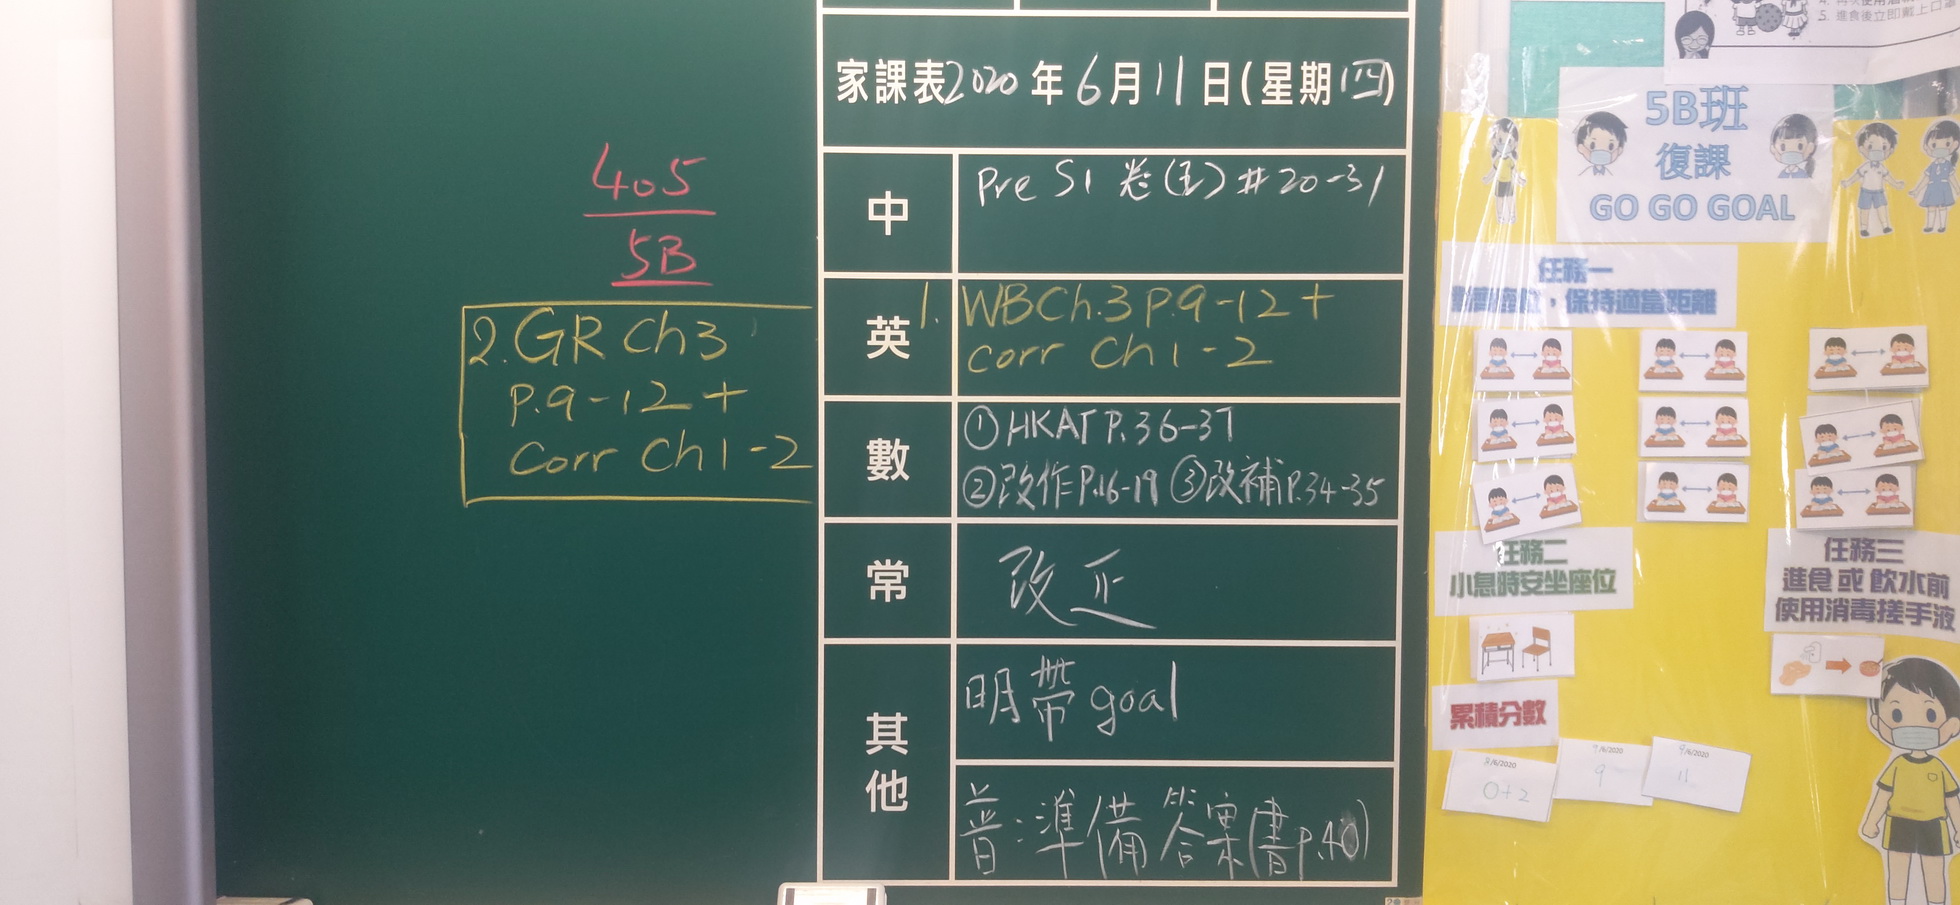 405
5B
2.GR Ch3
p.9-12+
Corr Ch1-2
家課表2020年6月11日(星期四)
中
Pre S1 卷(五)#20-31
英
1. WBCh.3 p.9-12+
corr Ch1-2
數
①HKAT P.36-37
②改作P.16-19 ③改補P.34-35
常
改正
其他
明帶goal
普:準備答案(書p.40)
5. 進食後立即戴上口罩
5B班
復課
GO GO GOAL
任務一
,保持適當距離
任務二
小息時安坐座位
任務三
進食 或 飲水前
使用消毒搓手液
累積分數
8/6/2020
0+2
9/6/2020
9
9/6/2020
11